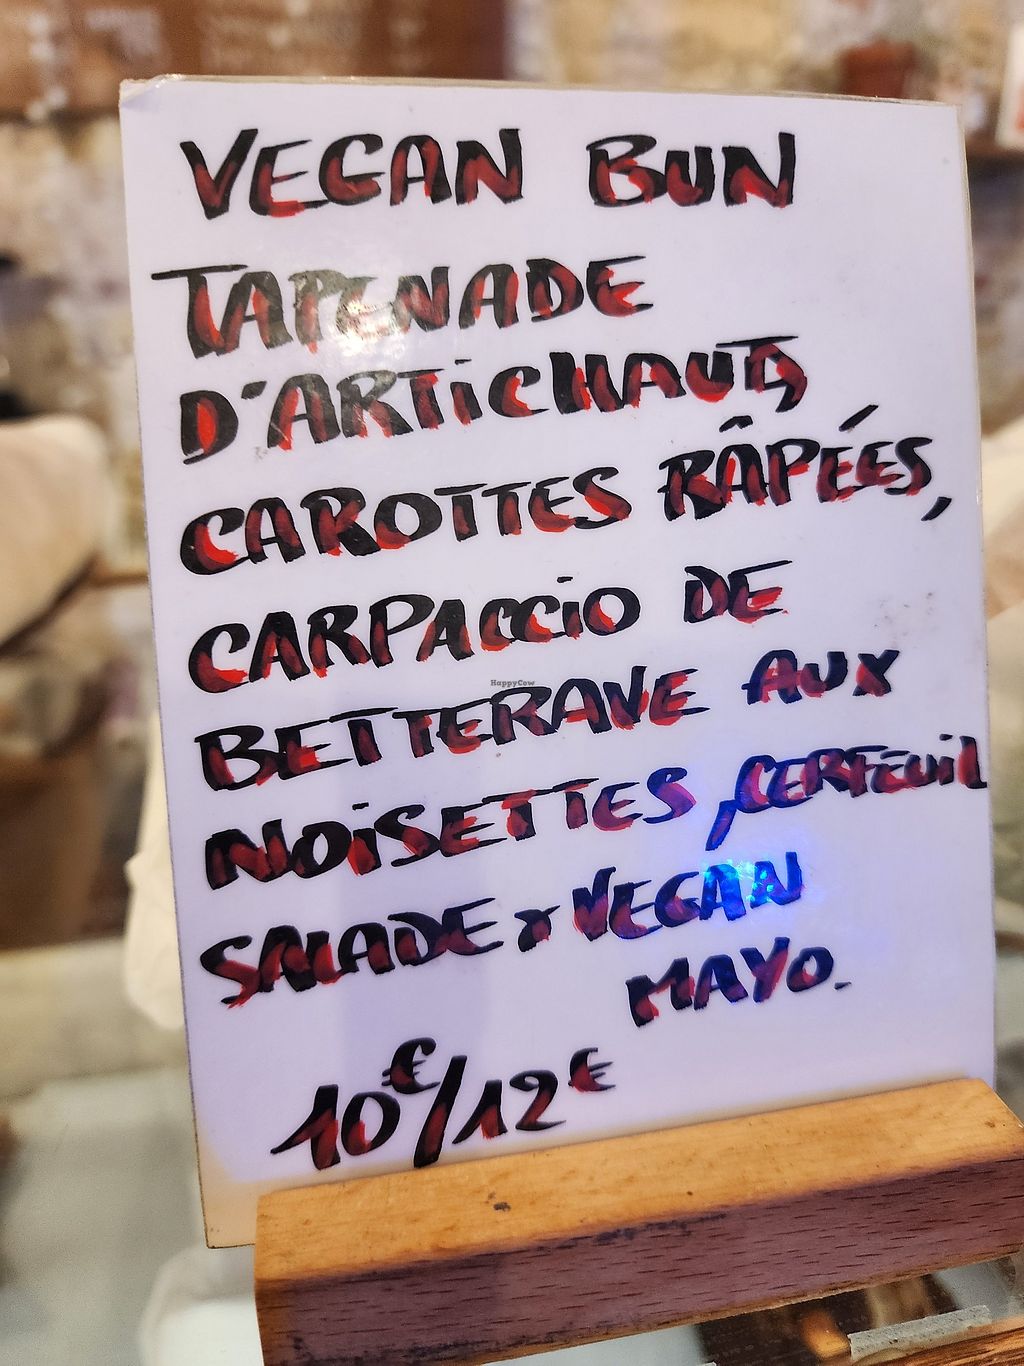 VEGAN BUN
TAPENADE
D'ARTiCHAUTS,
CAROTTES RÂPÉES,
CARPACCiO DE
HappyCow
BETTERAVE AUX
NOiSETTES, CERFEUiL
SALADE & VEGAN
MAYO.
10€/12€